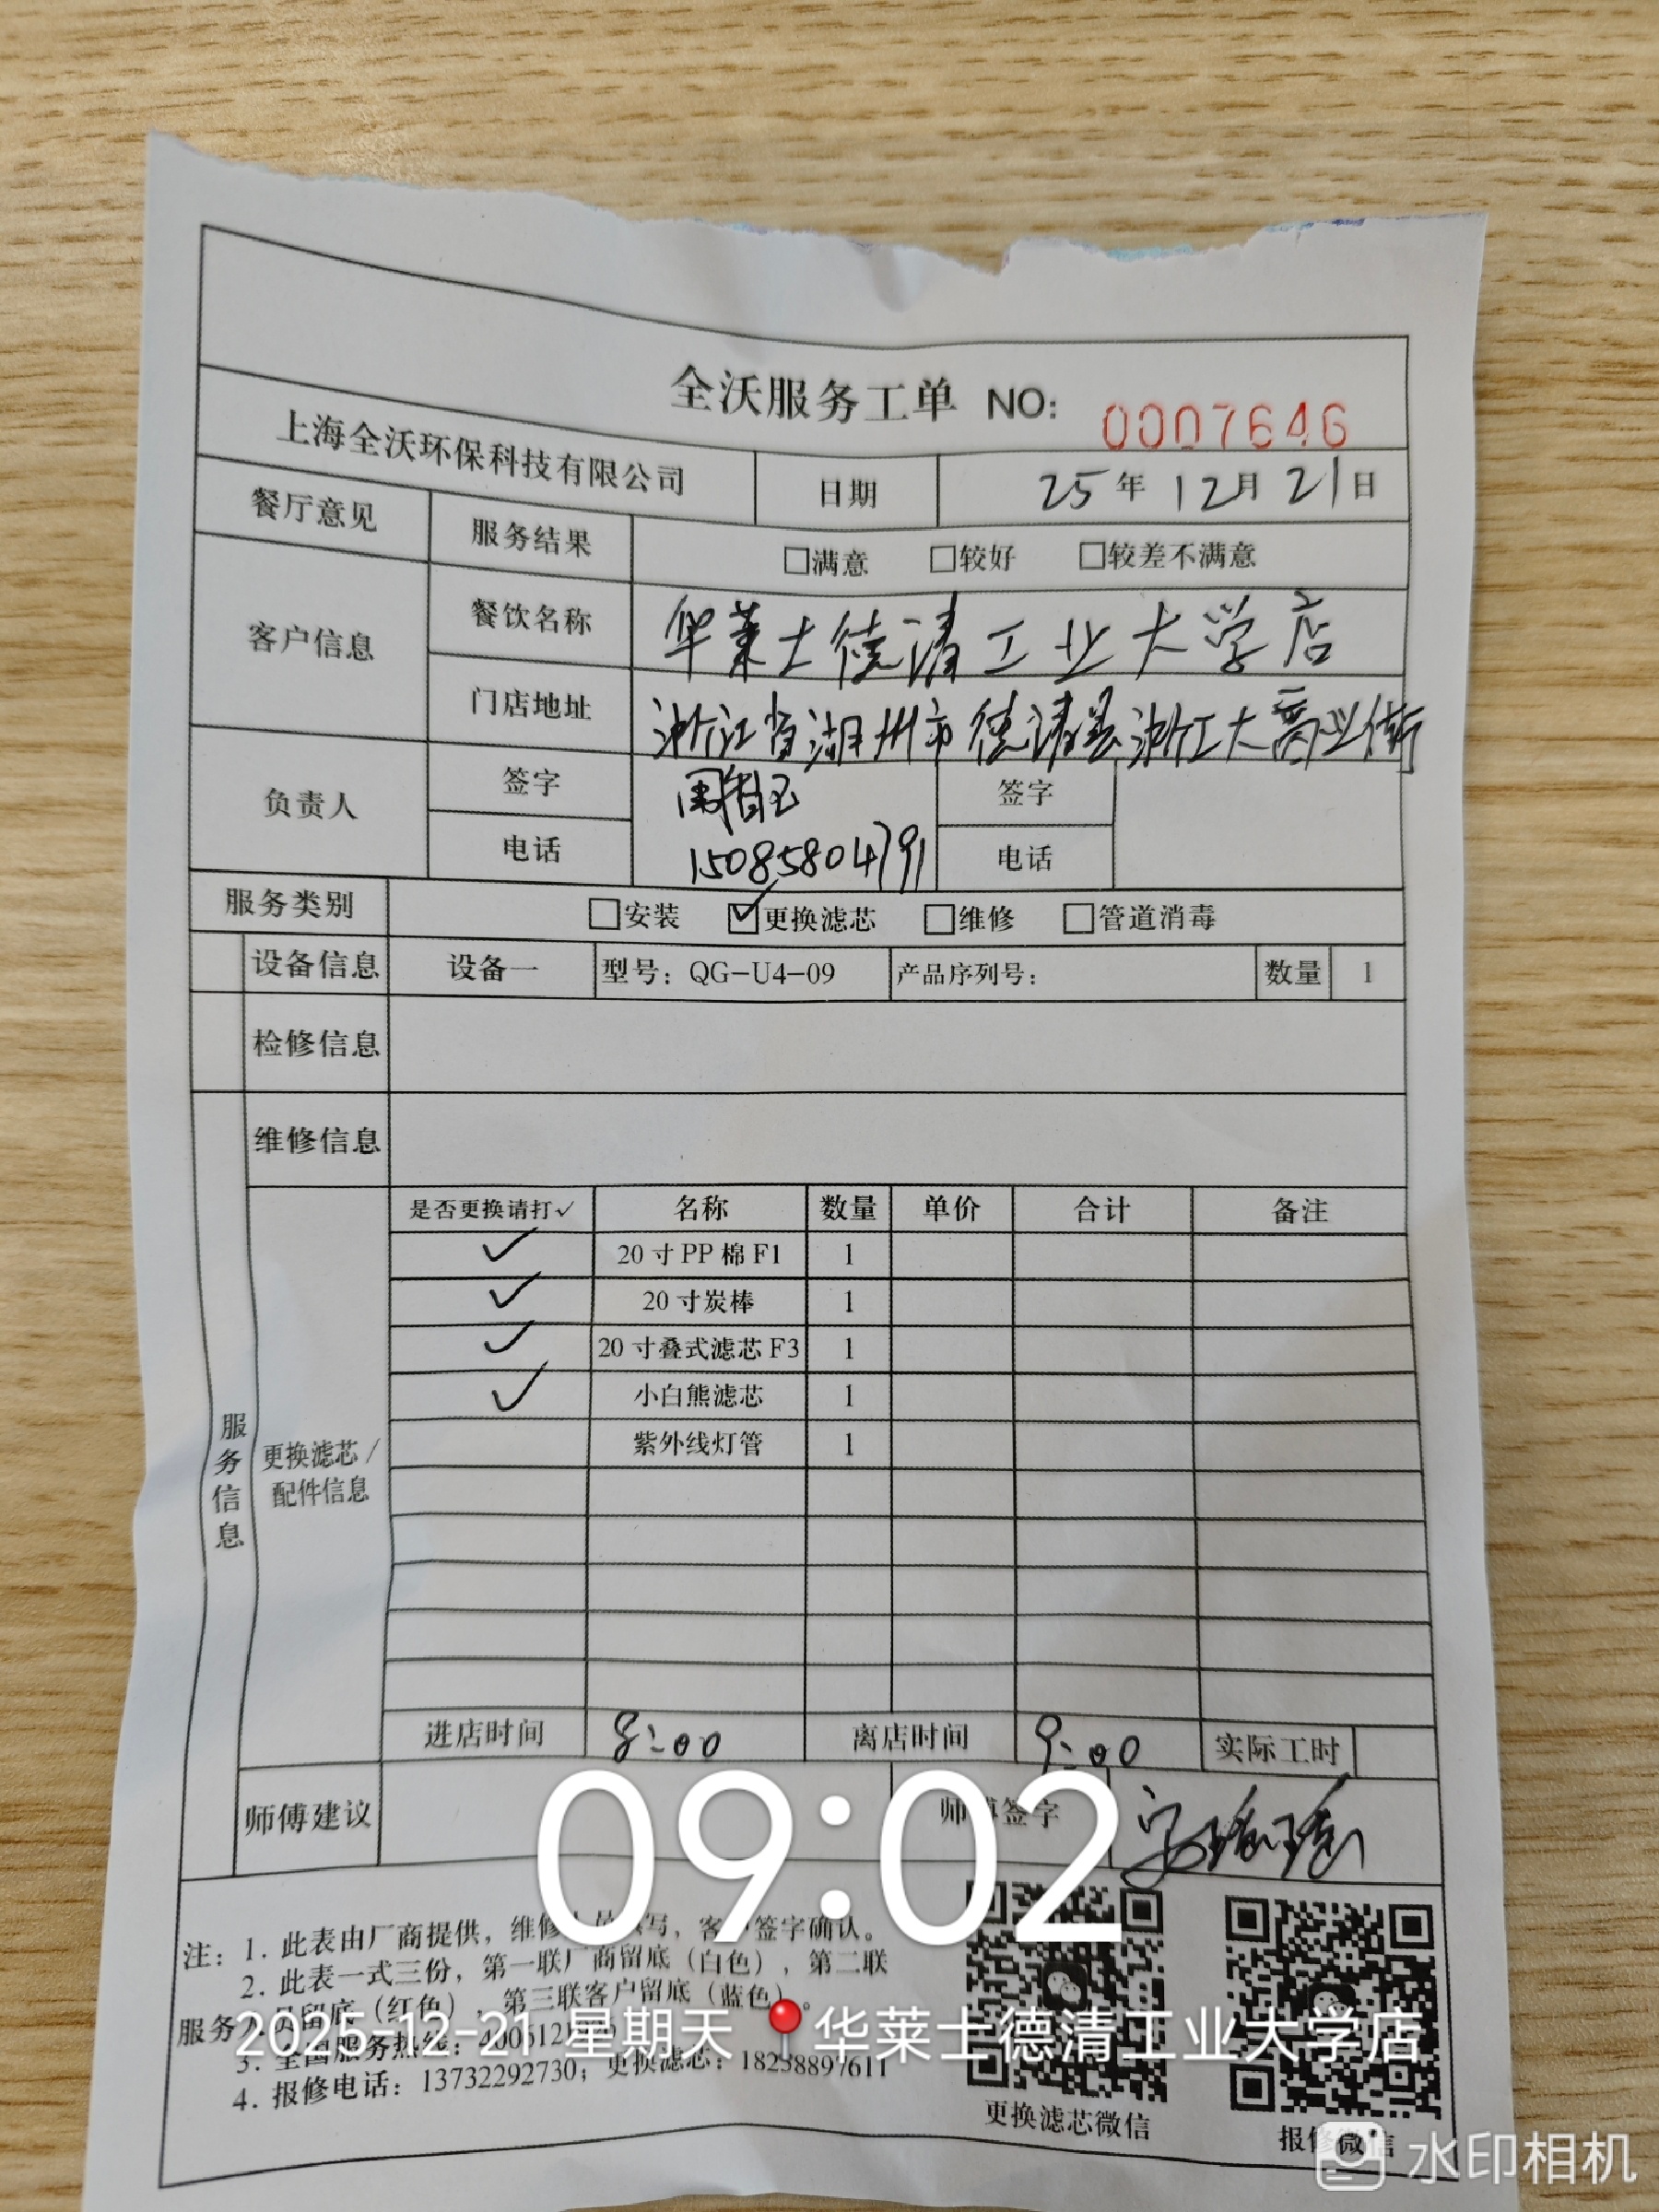 全沃服务工单 NO: 0007646
上海全沃环保科技有限公司 日期 25年12月21日
餐厅意见 服务结果 □满意 □较好 □较差不满意
客户信息 餐饮名称 华莱士德清工业大学店
门店地址 浙江省湖州市德清县浙工大商业街
负责人 签字 签字
电话 15085804791 电话
服务类别 □安装 ☑更换滤芯 □维修 □管道消毒
设备信息 设备一 型号：QG-U4-09 产品序列号： 数量 1
检修信息
维修信息
服务信息
更换滤芯/配件信息
是否更换请打✓ 名称 数量 单价 合计 备注
✓ 20寸PP棉F1 1
✓ 20寸炭棒 1
✓ 20寸叠式滤芯F3 1
✓ 小白熊滤芯 1
紫外线灯管 1
进店时间 8:00 离店时间 9:00 实际工时
师傅建议 师傅签字
09:02
注：1. 此表由厂商提供，维修 写，客 签字确认。
2. 此表一式三份，第一联厂商留底（白色），第二联
服务 员留底（红色），第三联客户留底（蓝色）。
3. 全国服务热线：
4. 报修电话：13732292730；更换滤芯：18238897611
2025-12-21 星期天 华莱士德清工业大学店
更换滤芯微信
报修微信
水印相机